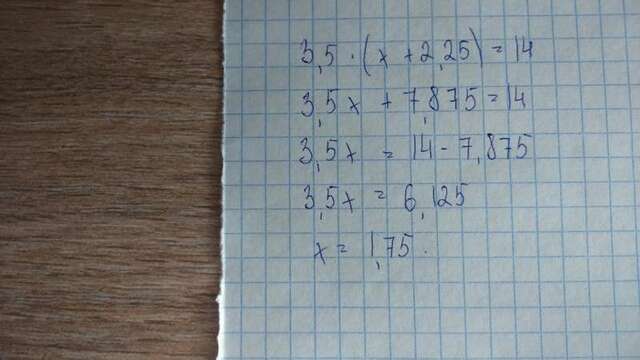 3,5 · (x + 2,25) = 14
3,5x + 7,875 = 14
3,5x = 14 - 7,875
3,5x = 6,125
x = 1,75.